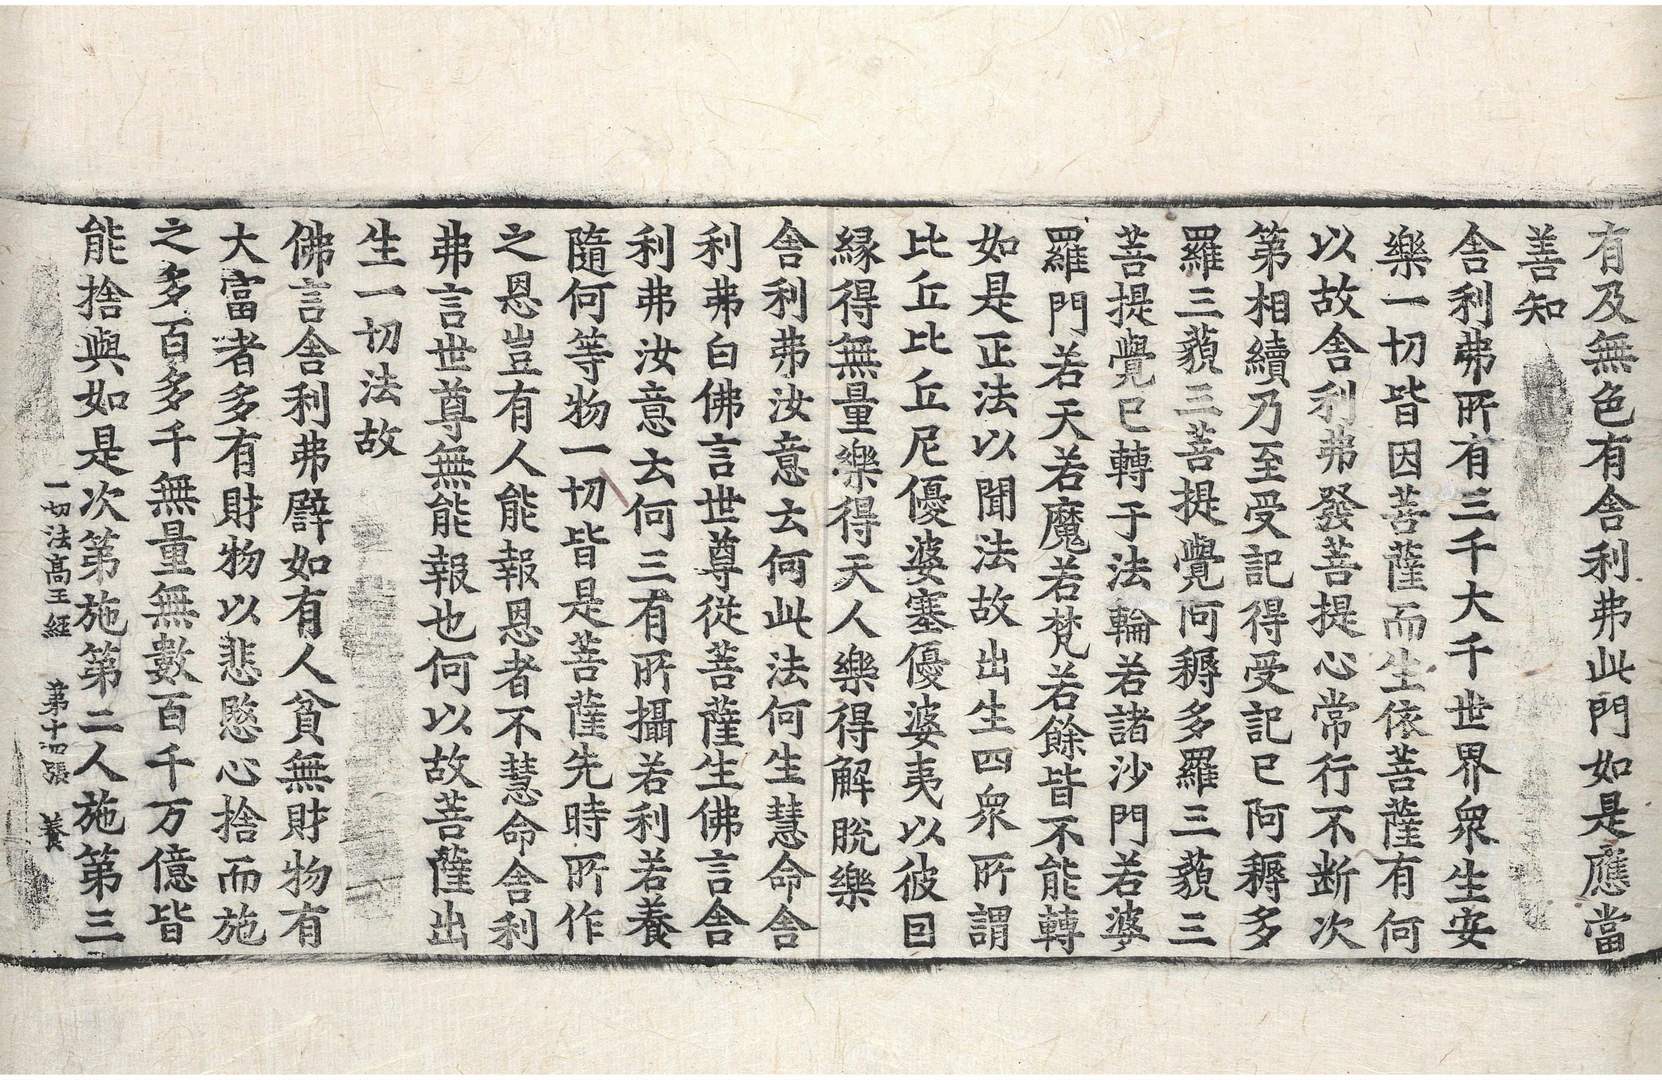 有及無色有舍利弗此門如是應當
善知
舍利弗所有三千大千世界衆生安
樂一切皆因菩薩而生依菩薩有何
以故舍利弗發菩提心常行不断次
第相續乃至受記得受記已阿耨多
羅三藐三菩提覺阿耨多羅三藐三
菩提覺已轉于法輪若諸沙門若婆
羅門若天若魔若梵若餘皆不能轉
如是正法以聞法故出生四衆所謂
比丘比丘尼優婆塞優婆夷以彼因
縁得無量樂得天人樂得解脫樂
舍利弗汝意云何此法何生慧命舍
利弗白佛言世尊從菩薩生佛言舍
利弗汝意云何三有所攝若利若養
隨何等物一切皆是菩薩先時所作
之恩豈有人能報恩者不慧命舍利
弗言世尊無能報也何以故菩薩出
生一切法故
佛言舍利弗譬如有人貧無財物有
大富者多有財物以悲愍心捨而施
之多百多千無量無數百千万億皆
能捨與如是次第施第二人施第三
一切法高王經 第十四張 養